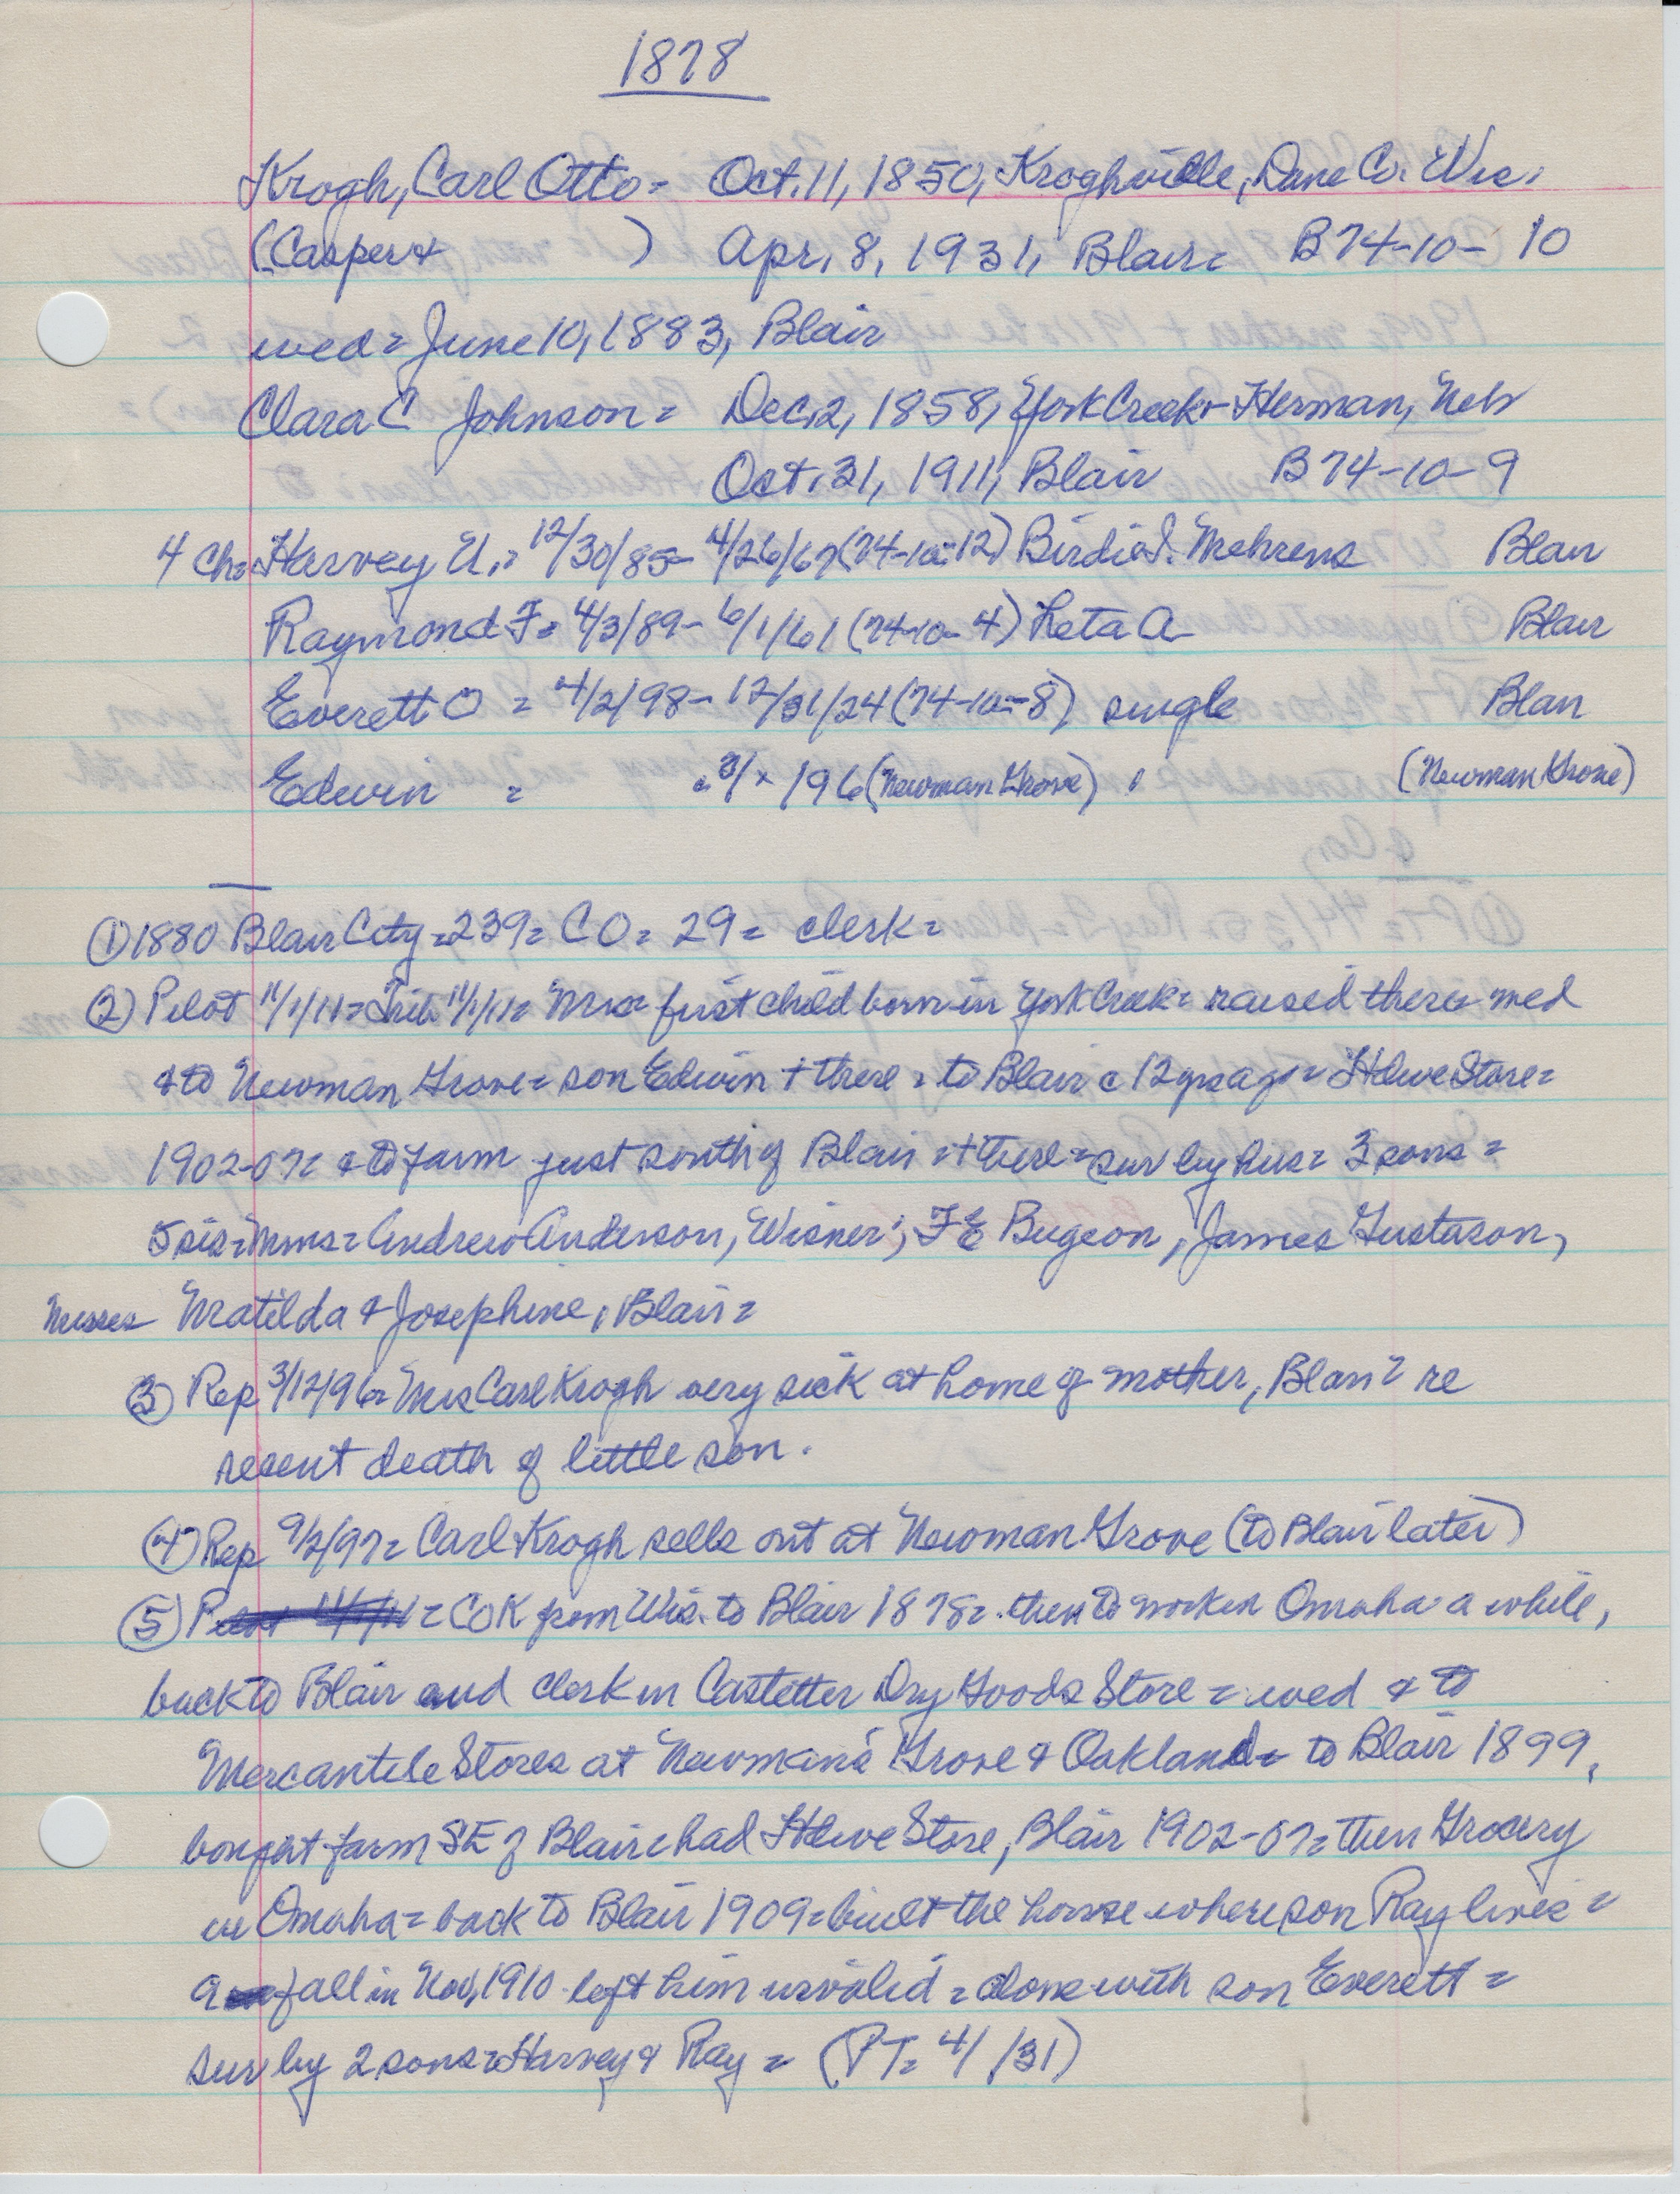 1878
Krogh, Carl Otto = Oct. 11, 1850, Kroghville, Dane Co. Wis.
(Casper & ) Apr. 8, 1931, Blair = B74-10-10
wed = June 10, 1883, Blair
Clara C Johnson = Dec. 2, 1858, York Creek - Herman, Neb
Oct. 31, 1911, Blair B74-10-9
4 ch = Harvey U. = 12/30/85 - 4/26/67 (74-10-12) Birdie I. Mehrens Blair
Raymond F = 4/3/89 - 6/1/61 (74-10-4) Leta A Blair
Everett O = 4/2/98 - 12/31/24 (74-10-8) single Blair
Edwin = 196 (Newman Grove) (Newman Grove)
① 1880 Blair City = 239 = CO = 29 = clerk =
② Pilot 11/1/11 = Trib 11/1/11 = Mrs = first child born in York Creek = raised there = wed
& to Newman Grove = son Edwin + there = to Blair c 12 yrs ago = Hdwe Store =
1902-07 = & to farm just south of Blair = + there = sur by hus = 3 sons =
5 sis = Mms = Andrew Anderson, Wisner; F E Bugeon, James Gustason,
Misses Matilda & Josephine, Blair =
③ Rep 3/12/96 = Mrs Carl Krogh very sick at home of mother, Blair = re
recent death of little son.
④ Rep 9/2/97 = Carl Krogh sells out at Newman Grove (to Blair later)
⑤ = COK from Wis. to Blair 1878 = then to work in Omaha a while,
back to Blair and clerk in Castetter Dry Goods Store = wed & to
Mercantile Stores at Newman's Grove & Oakland = to Blair 1899,
bought farm SE of Blair = had Hdwe Store, Blair 1902-07 = then Grocery
in Omaha = back to Blair 1909 = built the house where son Ray lives =
a fall in Nov, 1910 left him invalid = alone with son Everett =
sur by 2 sons = Harvey & Ray = (PT = 4/ /31)